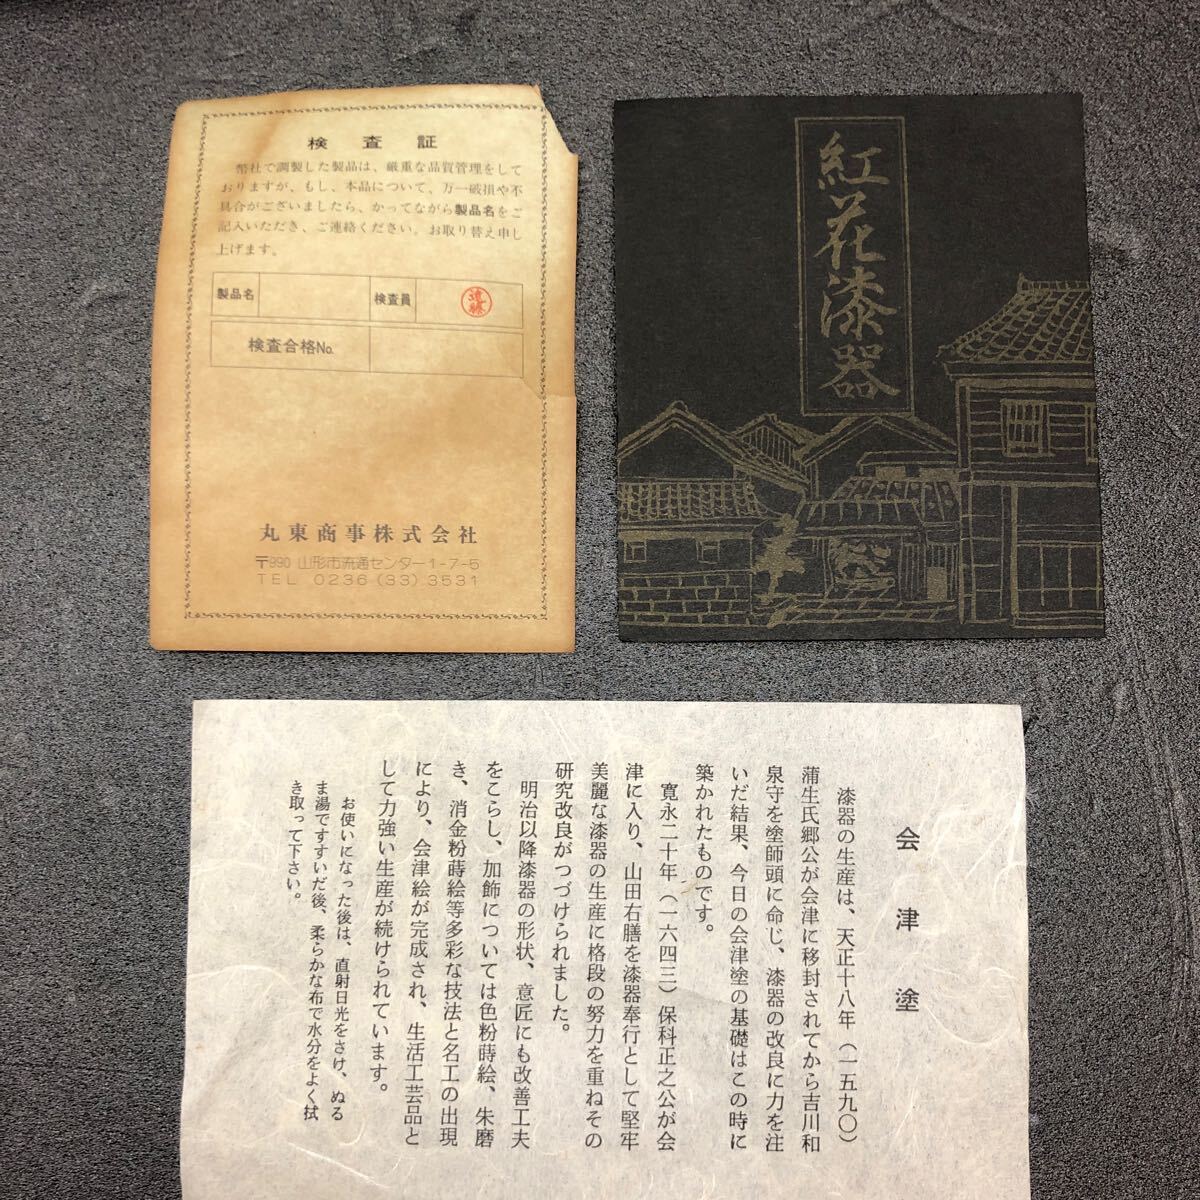 検査証
弊社で調製した製品は、厳重な品質管理をして
おりますが、もし、本品について、万一破損や不
具合がございましたら、かってながら製品名をご
記入いただき、ご連絡ください。お取り替え申し
上げます。
製品名
検査員
遠藤
検査合格No.
丸東商事株式会社
〒990 山形市流通センター1-7-5
TEL 0236 (33) 3531
紅花漆器
会津塗
漆器の生産は、天正十八年（一五九〇）
蒲生氏郷公が会津に移封されてから吉川和
泉守を塗師頭に命じ、漆器の改良に力を注
いだ結果、今日の会津塗の基礎はこの時に
築かれたものです。
寛永二十年（一六四三）保科正之公が会
津に入り、山田右膳を漆器奉行として堅牢
美麗な漆器の生産に格段の努力を重ねその
研究改良がつづけられました。
明治以降漆器の形状、意匠にも改善工夫
をこらし、加飾については色粉蒔絵、朱磨
き、消金粉蒔絵等多彩な技法と名工の出現
により、会津絵が完成され、生活工芸品と
して力強い生産が続けられています。
お使いになった後は、直射日光をさけ、ぬる
ま湯ですすいだ後、柔らかな布で水分をよく拭
き取って下さい。